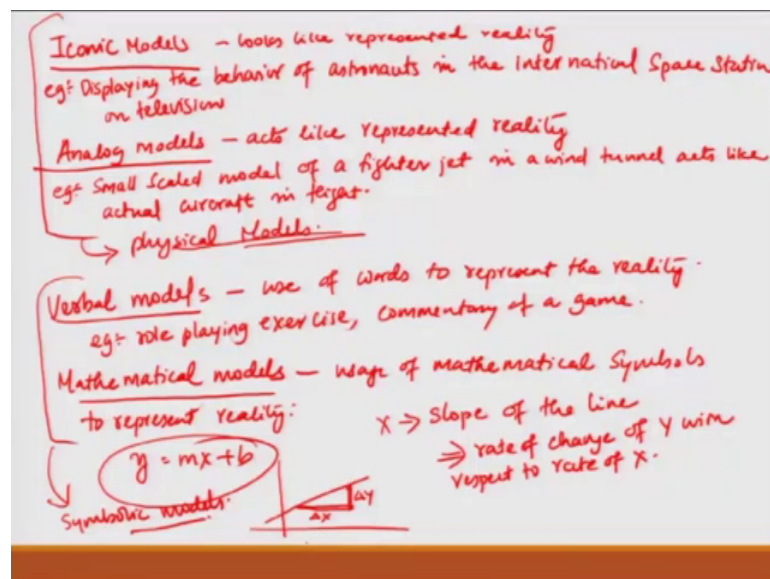 Iconic Models – looks like represented reality
eg:- Displaying the behavior of astronauts in the International Space Station
on television
Analog models – acts like represented reality
eg:- Small scaled model of a fighter jet in a wind tunnel acts like
actual aircraft in
→ physical Models.
Verbal models – use of words to represent the reality.
eg:- role playing exercise, commentary of a game.
Mathematical models – usage of mathematical Symbols
to represent reality:
y = mx+b
Symbolic models.
ΔX
ΔY
X → Slope of the line
⇒ rate of change of Y with
respect to rate of X.